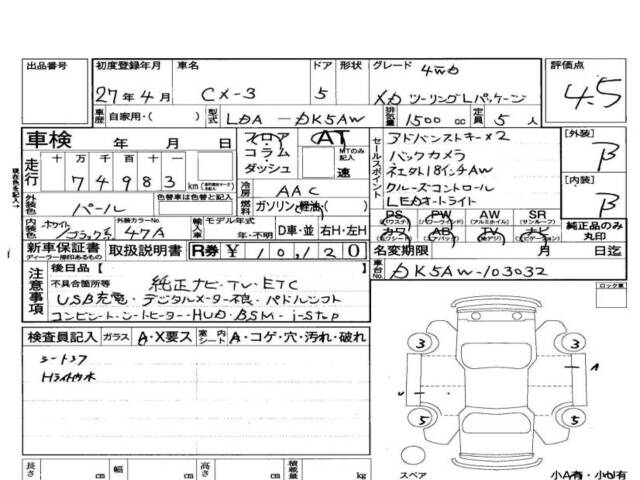 出品番号 初度登録年月 車名 ドア 形状 グレード 評価点
4WD
27年4月 CX-3 5 XD ツーリングLパッケージ 4.5
車歴 自家用・( ) 型式 LDA-DK5AW 排気量 1500cc 定員 5人
車検 年 月 日 フロア コラム ダッシュ AT MTのみ記入 速
走行 十万千百十一 74983 km
冷房 AAC
外装色 パール 色替車は色替と記入 燃料 ガソリン・軽油・( )
内装色 ホワイト ブラック系 外装カラーNo. 47A 輸入車 モデル年式 年・不明 D車・並 右H・左H
新車保証書 ディーラー捺印あるもの 取扱説明書 R券 ¥10,120
セールスポイント
アドバンストキー×2
バックカメラ
18インチAW
クルーズコントロール
LEDオートライト
PS (パワステ) PW (パワーウインド) AW (アルミホイル) SR (サンルーフ)
カワ (革シート) AB (エアバック) TV (純デジ) ナビ
[外装] B
[内装] B
純正品のみ丸印
名変期限 月 日迄
車台No. DK5AW-103032
現在色を記入→
注意事項 後日品 [ ]
不具合箇所等 純正ナビ・TV・ETC
USB充電・デジタルメーター不良・パドルシフト
コンビシート・シートヒーター・HUD・BSM・i-stop
ロック某
検査員記入 ガラス A・X要ス 室内シート A・コゲ・穴・汚れ・破れ
3 3
A
U
5 5
スペア
小A有・小U有
長さ cm 幅 cm 高さ cm 積載量 kg